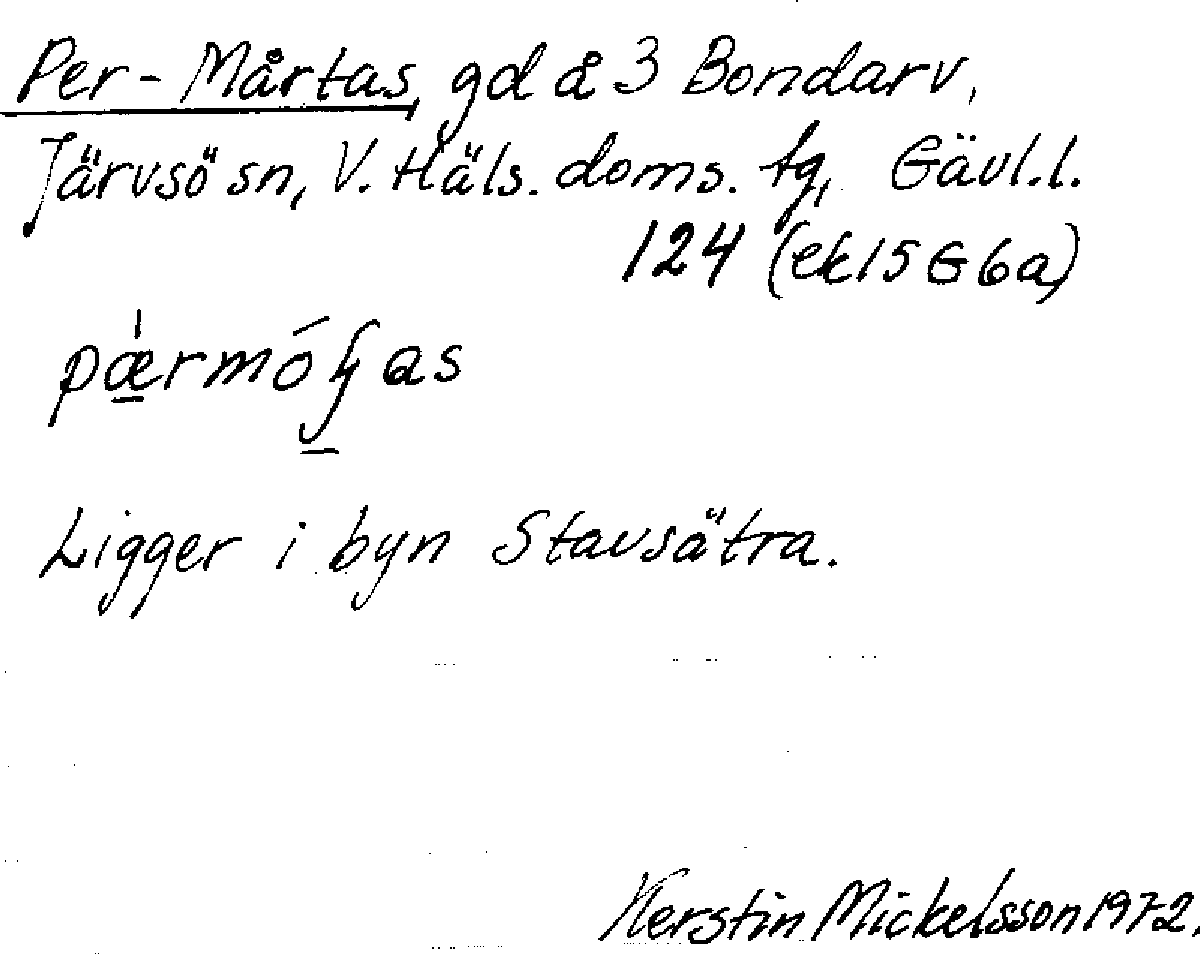 Per-Mårtas, gd å 3 Bondarv,
Järvsö sn, V. Häls. doms. tg, Gävl.l.
124 (ek 15 G 6a)
Ligger i byn Stavsätra.
Kerstin Mickelsson 1972.